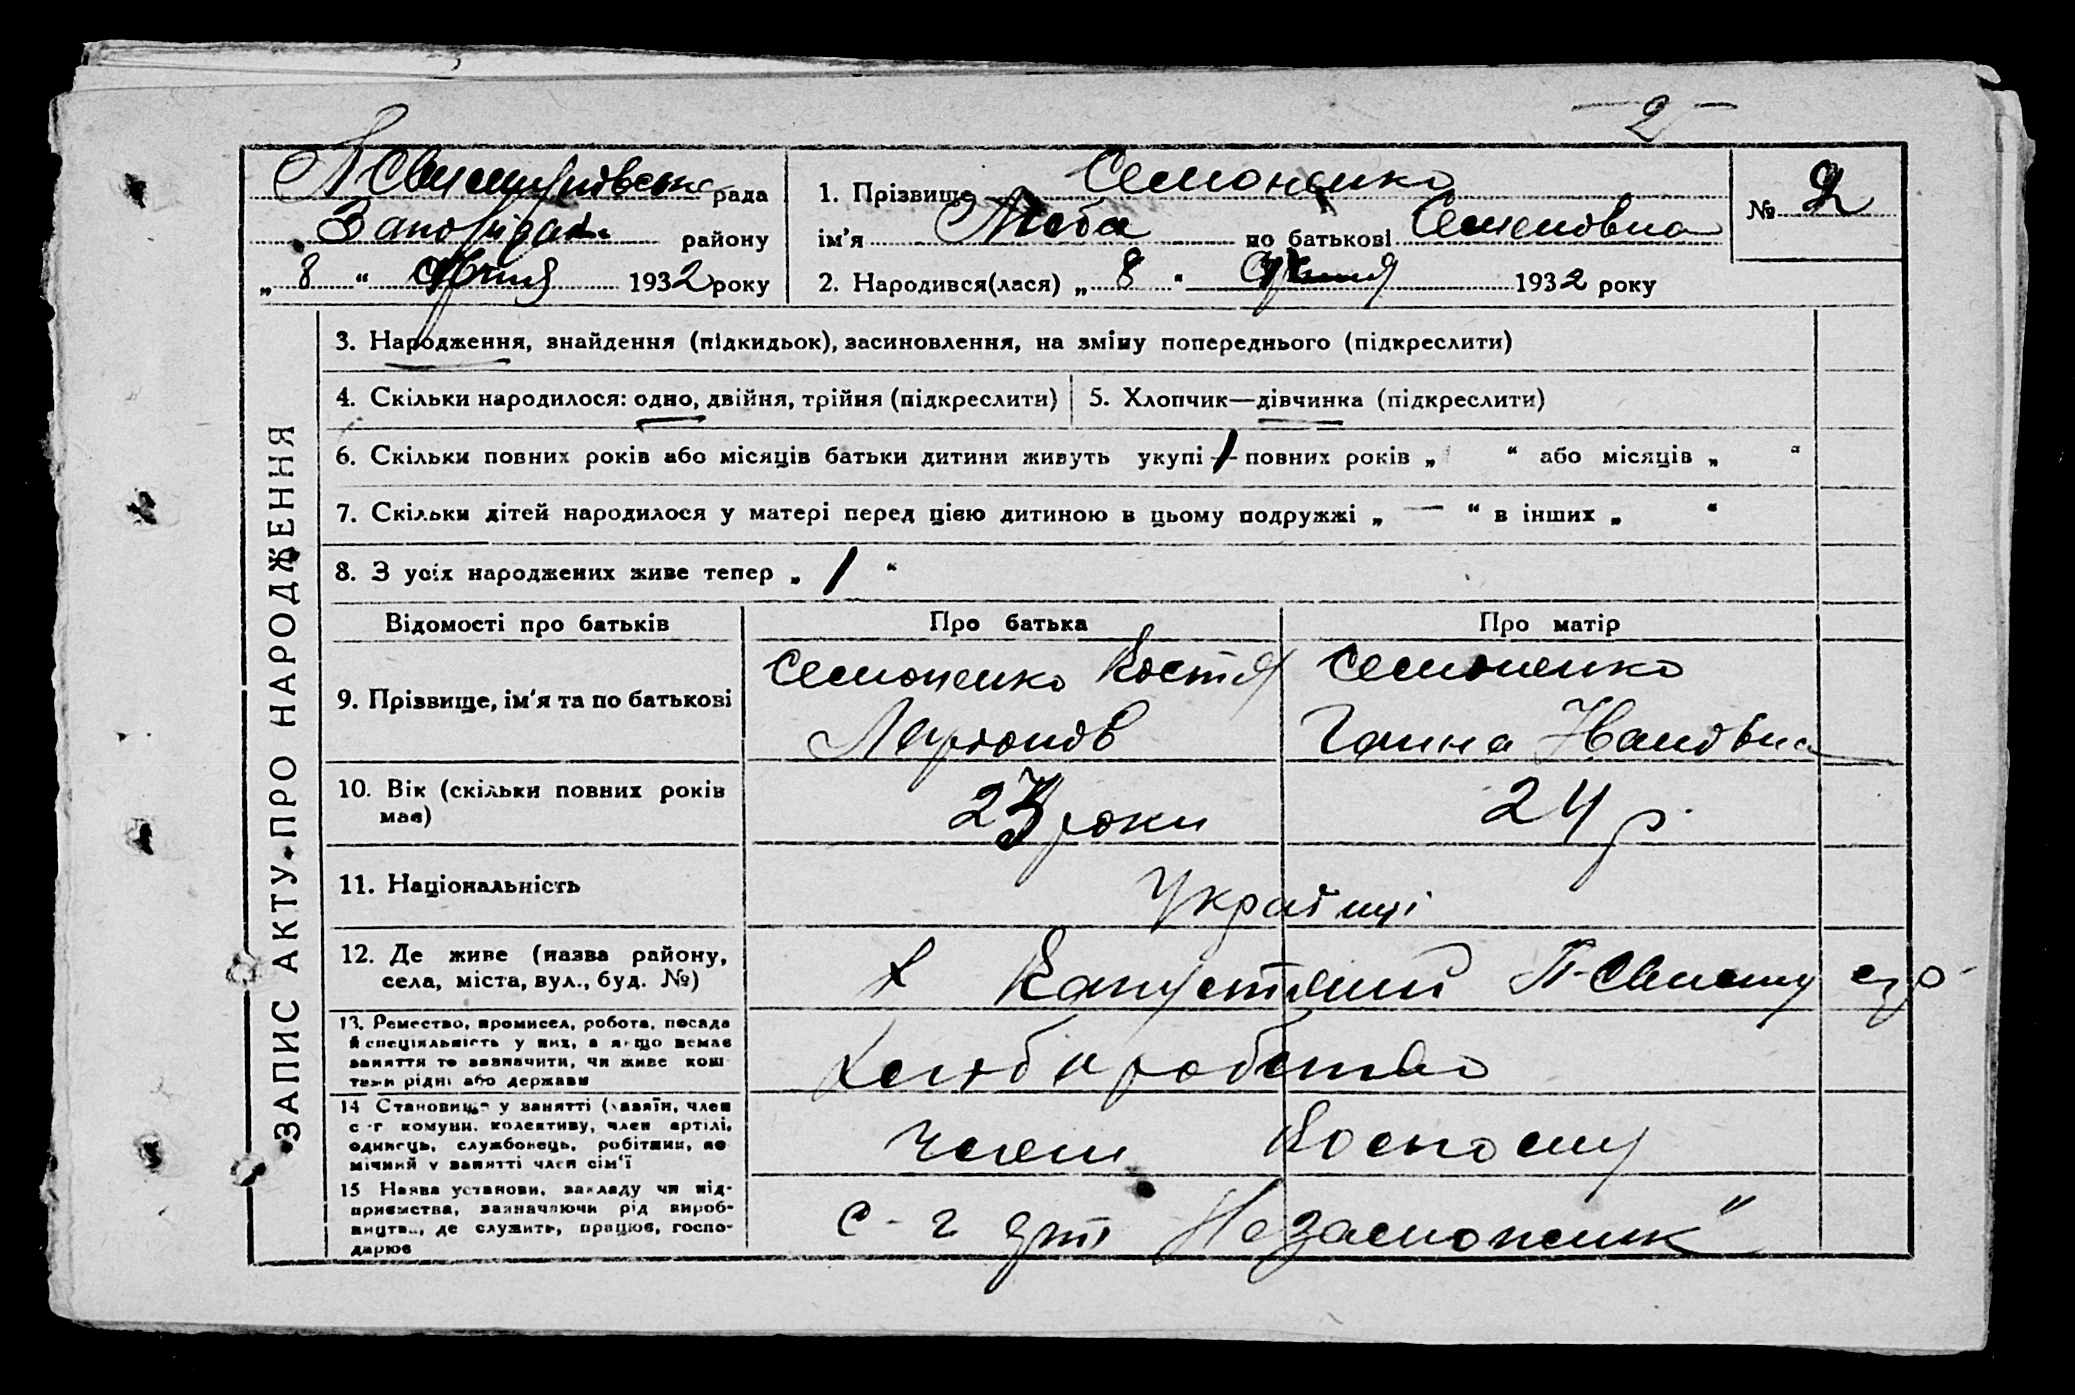 — 2 —
П Свистунівська рада
Запорізьк. району
„ 8 “ 1932 року
1. Прізвище Семоненко
ім'я Люба по батькові Семеновна
2. Народився(лася) „ 8 “ 1932 року
№ 2
ЗАПИС АКТУ ПРО НАРОДЖЕННЯ
3. Народження, знайдення (підкидьок), засиновлення, на зміну попереднього (підкреслити)
4. Скільки народилося: одно, двійня, трійня (підкреслити)
5. Хлопчик—дівчинка (підкреслити)
6. Скільки повних років або місяців батьки дитини живуть укупі 1 повних років „ “ або місяців „ “
7. Скільки дітей народилося у матері перед цією дитиною в цьому подружжі „ — “ в інших „ “
8. З усіх народжених живе тепер „ 1 “
Відомості про батьків
Про батька
Про матір
9. Прізвище, ім'я та по батькові
Семоненко Костя
Ларіонов
Семоненко
Ганна Івановна
10. Вік (скільки повних років
має)
23 роки
24 р.
11. Національність
Українці
12. Де живе (назва району,
села, міста, вул., буд. №)
х Капустяний П-Свисту с/р
13. Ремество, промисел, робота, посада
й спеціяльність у них, а якщо немає
заняття то зазначити, чи живе кош-
тами рідні або держави
Хліборобство
14 Становище у занятті (хазяїн, член
с-г комуни, колективу, член артілі,
одинець, службонець, робітник, по-
мічний у занятті член сім'ї
член Колгоспу
15 Назва установи, закладу чи під-
приємства, зазначаючи рід вироб-
ництва, де служить, працює, госпо-
дарює
с-г арт Незаможник"